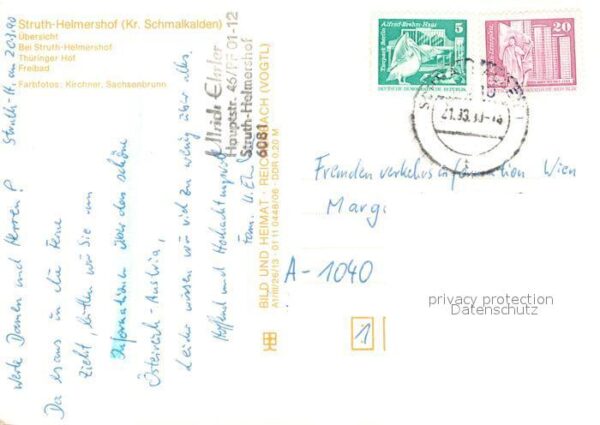 Struth-Helmershof (Kr. Schmalkalden)
Übersicht
Bei Struth-Helmershof
Thüringer Hof
Freibad
Farbfotos: Kirchner, Sachsenbrunn
Struth-H. am 20.3.90
Werte Damen und Herren!
Da es uns in die Ferne
zieht, bitten wir Sie um
Information über das schöne
Österreich-Austria,
Leider wissen wir viel zu wenig über alles
Hoffend und Hochachtungsvoll
Fam. U. Ehler
Ulrich Ehler
Hauptstr. 45/PF 01-12
Struth-Helmershof
6081
BILD UND HEIMAT · REICHENBACH (VOGTL)
A1/III/26/13 · 01 11 0448/06 · DDR 0,20 M
Tierpark Berlin
Alfred-Brehm-Haus
5
DEUTSCHE DEMOKRATISCHE REPUBLIK
20
Fremdenverkehrsinformation Wien
Marg.
A-1040
1
privacy protection
Datenschutz